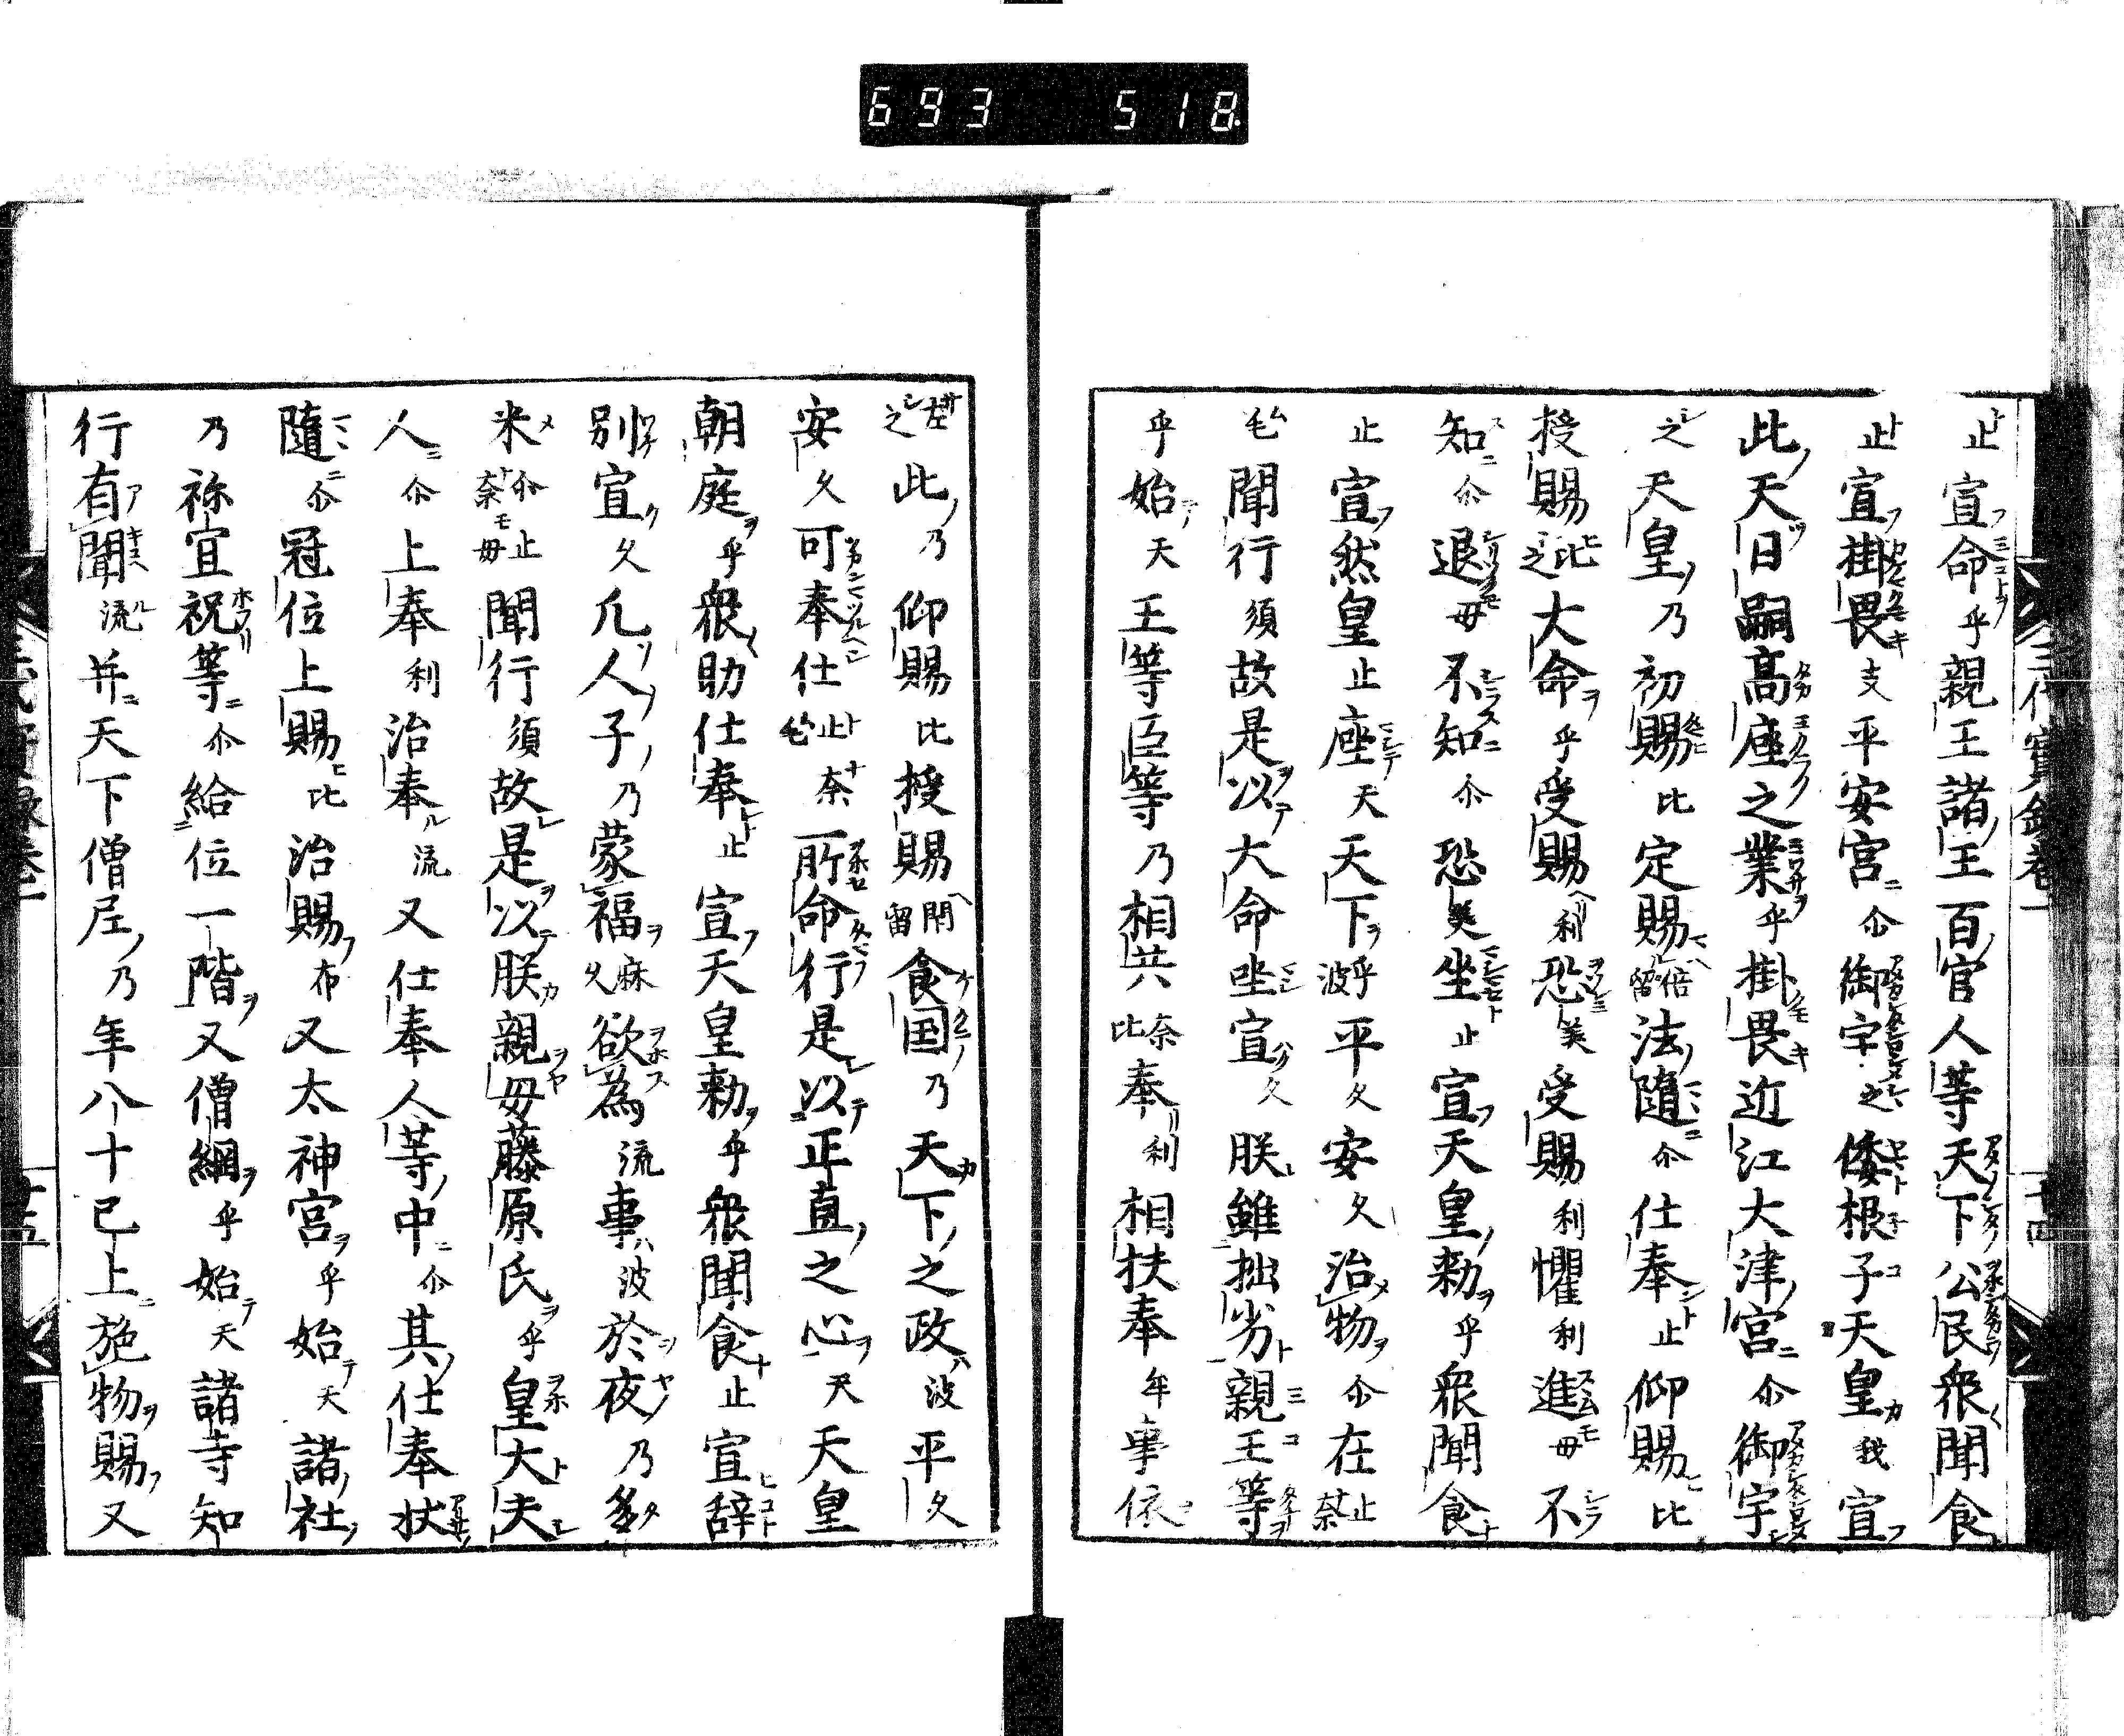 693 518
三代實録卷一
十四
止宣命乎親王諸王百官人等天下公民衆聞食
止宣掛畏支平安宮尒御宇之倭根子天皇我宣
此天日嗣高座之業乎掛畏近江大津宮尒御宇
之天皇乃初賜比定賜倍留法隨尒仕奉止仰賜比
授賜比之大命乎受賜利恐美受賜利懼利進毋不
知尒退毋不知尒恐美坐止宣天皇勅乎衆聞食
止宣然皇止座天天下乎波平久安久治物尒在止奈
毛聞行須故是以大命坐宣久朕雖拙劣親王等
乎始天王等臣等乃相共奈比奉利相扶奉牟事依
左之此乃仰賜比授賜閇留食国乃天下之政波平久
安久可奉仕止奈毛所命行是以正直之心天天皇
朝庭乎衆助仕奉止宣天皇勅乎衆聞食止宣辞
別宣久凢人子乃蒙福麻久欲為流事波於夜乃多
米尒止奈毋聞行須故是以朕親毋藤原氏乎皇大夫
人尒上奉利治奉流又仕奉人等中尒其仕奉状
隨尒冠位上賜比治賜布又太神宮乎始天諸社
乃祢宜祝等尒給位一階又僧綱乎始天諸寺知
行有聞流并天下僧尼乃年八十已上施物賜又